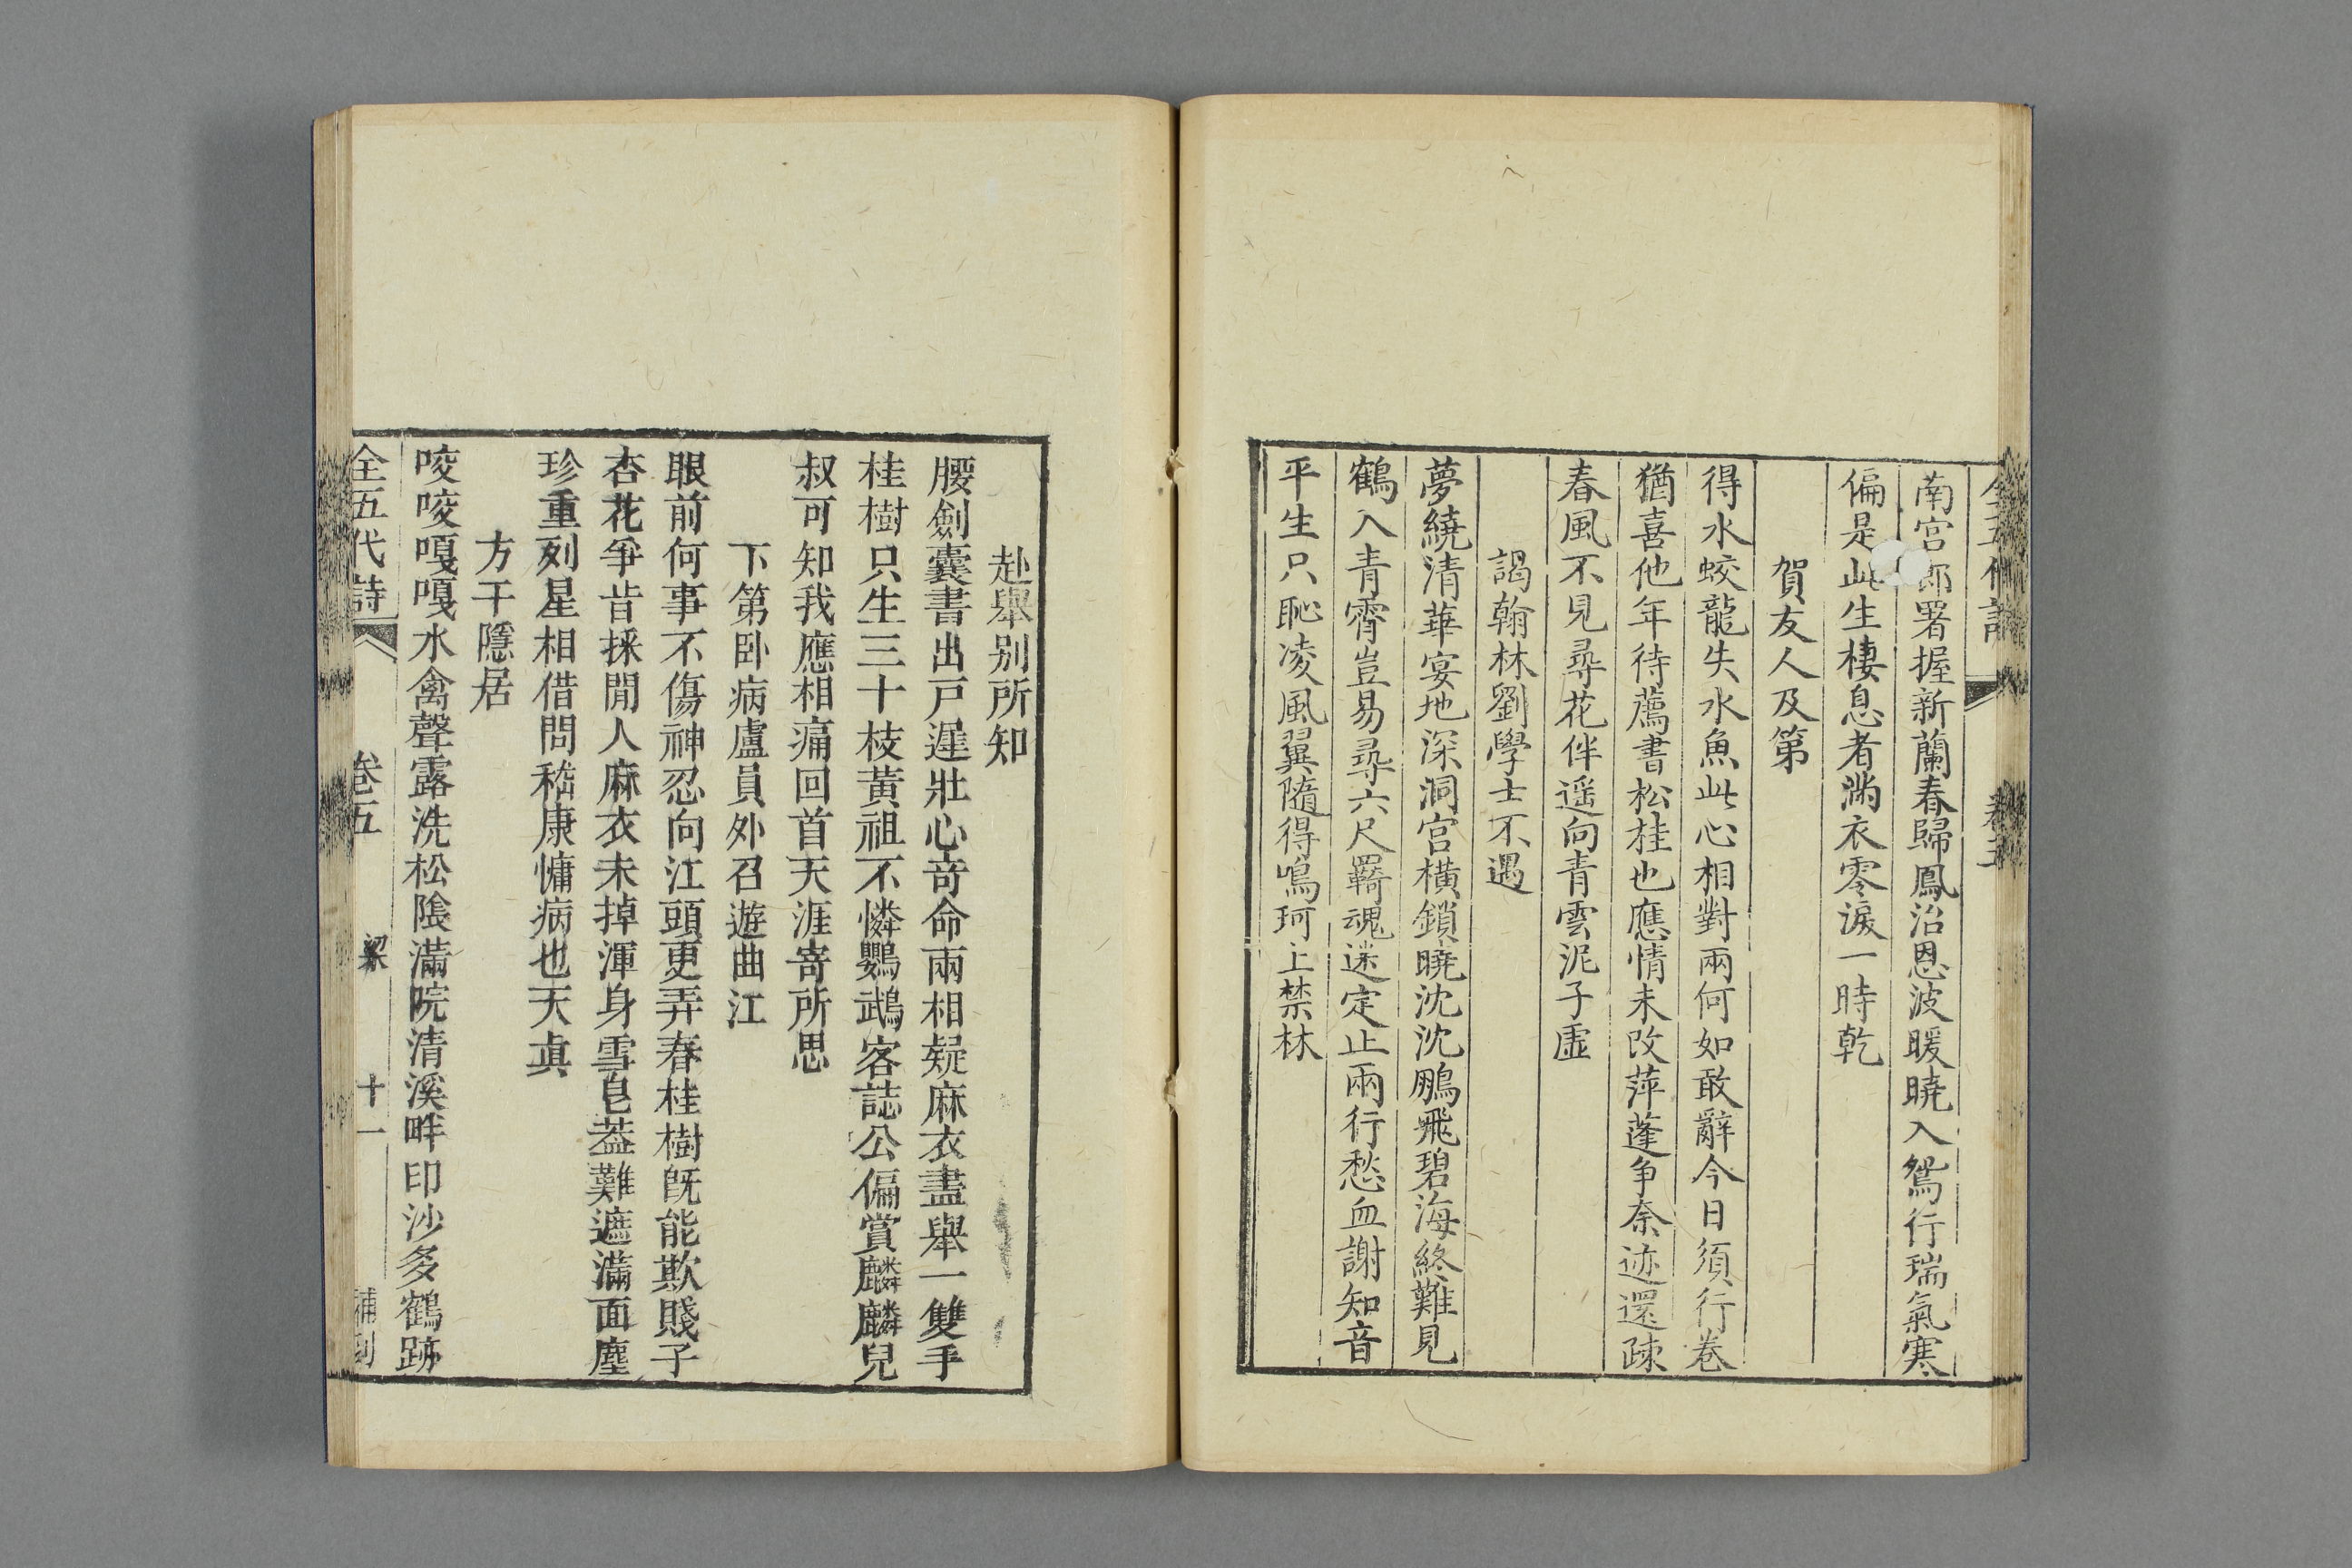 全五代詩 卷五
南宮郎署握新蘭春歸鳳沼恩波暖曉入鴛行瑞氣寒
偏是此生棲息者滿衣零淚一時乾
賀友人及第
得水蛟龍失水魚此心相對兩何如敢辭今日須行卷
猶喜他年待薦書松桂也應情未改萍蓬爭奈迹還疎
春風不見尋花伴遥向青雲泥子虛
謁翰林劉學士不遇
夢繞清華宴地深洞宮橫鎖曉沈沈鵬飛碧海終難見
鶴入青霄豈易尋六尺羇魂迷定止兩行愁血謝知音
平生只恥凌風翼隨得鳴珂上禁林
赴舉别所知
腰劍囊書出戸遲壯心竒命兩相疑麻衣盡舉一雙手
桂樹只生三十枝黃祖不憐鸚鵡客誌公偏賞麒麟兒
叔可知我應相痛回首天涯寄所思
下第卧病盧員外召遊曲江
眼前何事不傷神忍向江頭更弄春桂樹旣能欺賤子
杏花爭肯採閒人麻衣未掉渾身雪皂葢難遮滿面塵
珍重列星相借問嵇康慵病也天眞
方干隱居
咬咬嘎嘎水禽聲露洗松陰滿院清溪畔印沙多鶴跡
全五代詩 卷五 梁 十一 補刻